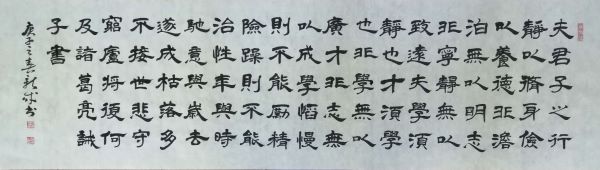 夫君子之行
靜以脩身儉
以養德非澹
泊無以明志
非寧靜無以
致遠夫學須
靜也才須學
也非學無以
廣才非志無
以成學慆慢
則不能勵精
險躁則不能
治性年與時
馳意與歲去
遂成枯落多
不接世悲守
窮廬將復何
及諸葛亮誡
子書
庚子之春書